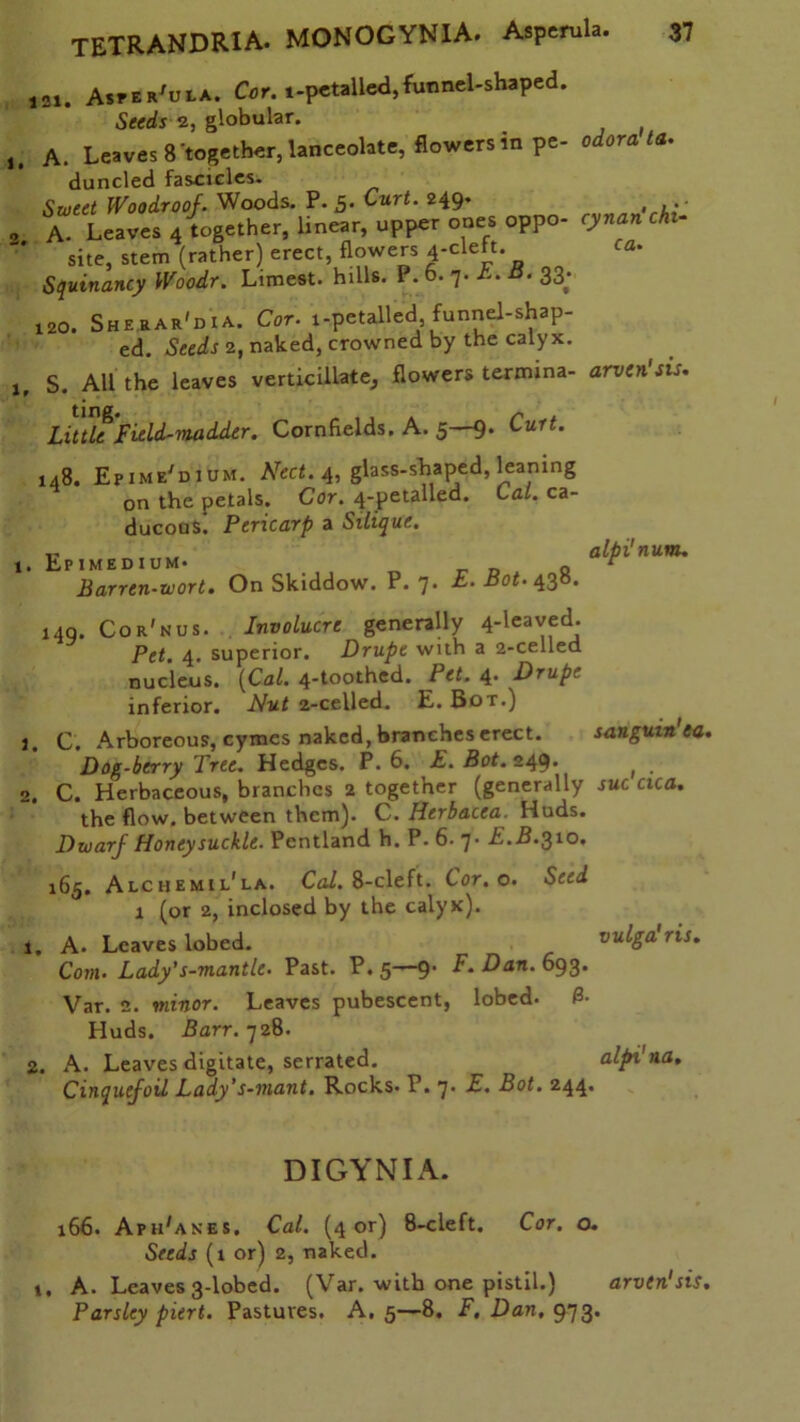 TETRANDRIA. MONOGYNIA. Asperula. 37
121. ASPER'ULA. Cor. 1-petalled, funnel-shaped.
Seeds 2, globular.
1. A. Leaves 8 together, lanceolate, flowers in pe- odora'ta.
duncled fascicles.
Sweet Woodroof. Woods. P. 5. Curt. 249.
2. A. Leaves 4 together, linear, upper ones oppo- cynan'chi-
site, stem (rather) erect, flowers 4-cleft. ca.
Squinancy Woodr. Limest. hills. P. 6. 7. E. B. 33.
120. SHERAR'DIA. Cor. 1-petalled, funnel-shap-
ed. Seeds 2, naked, crowned by the calyx.
1, S. All the leaves verticillate, flowers termina- arven'sis.
ting.
Little Field-madder. Cornfields. A. 5—9. Curt.
148. EPIME'DIUM. Nect. 4, glass-shaped, leaning
on the petals. Cor. 4-petalled. Cal. ca-
ducous. Pericarp a Silique.
1. EPIMEDIUM. alpi'num.
Barren-wort. On Skiddow. P. 7. E. Bot. 438.
149. COR'NUS. Involucre generally 4-leaved.
Pet. 4. superior. Drupe with a 2-celled
nucleus. (Cal. 4-toothed. Pet. 4. Drupe
inferior. Nut 2-celled. E. BOT.)
1. C. Arboreous, cymes naked, branches erect. sanguin'ea.
Dog-berry Tree. Hedges. P. 6. E. Bot. 249.
2. C. Herbaceous, branches 2 together (generally suc'cica.
the flow. between them). C. Herbacea. Huds.
Dwarf Honeysuckle. Pentland h. P. 6. 7. E.B.310.
165. ALCHEMIL'LA. Cal. 8-cleft. Cor. o. Seed
1 (or 2, inclosed by the calyx).
1. A. Leaves lobed. vulga'ris.
Com. Lady's-mantle. Past. P. 5—9. F. Dan. 693.
Var. 2. minor. Leaves pubescent, lobed. β.
Huds. Barr. 728.
2. A. Leaves digitate, serrated. alpi'na.
Cinquefoil Lady's-mant. Rocks. P. 7. E. Bot. 244.
DIGYNIA.
166. APH'ANES. Cal. (4 or) 8-cleft. Cor. o.
Seeds (1 or) 2, naked.
1, A. Leaves 3-lobed. (Var. with one pistil.) arven'sis.
Parsley piert. Pastures. A. 5—8. F. Dan. 973.